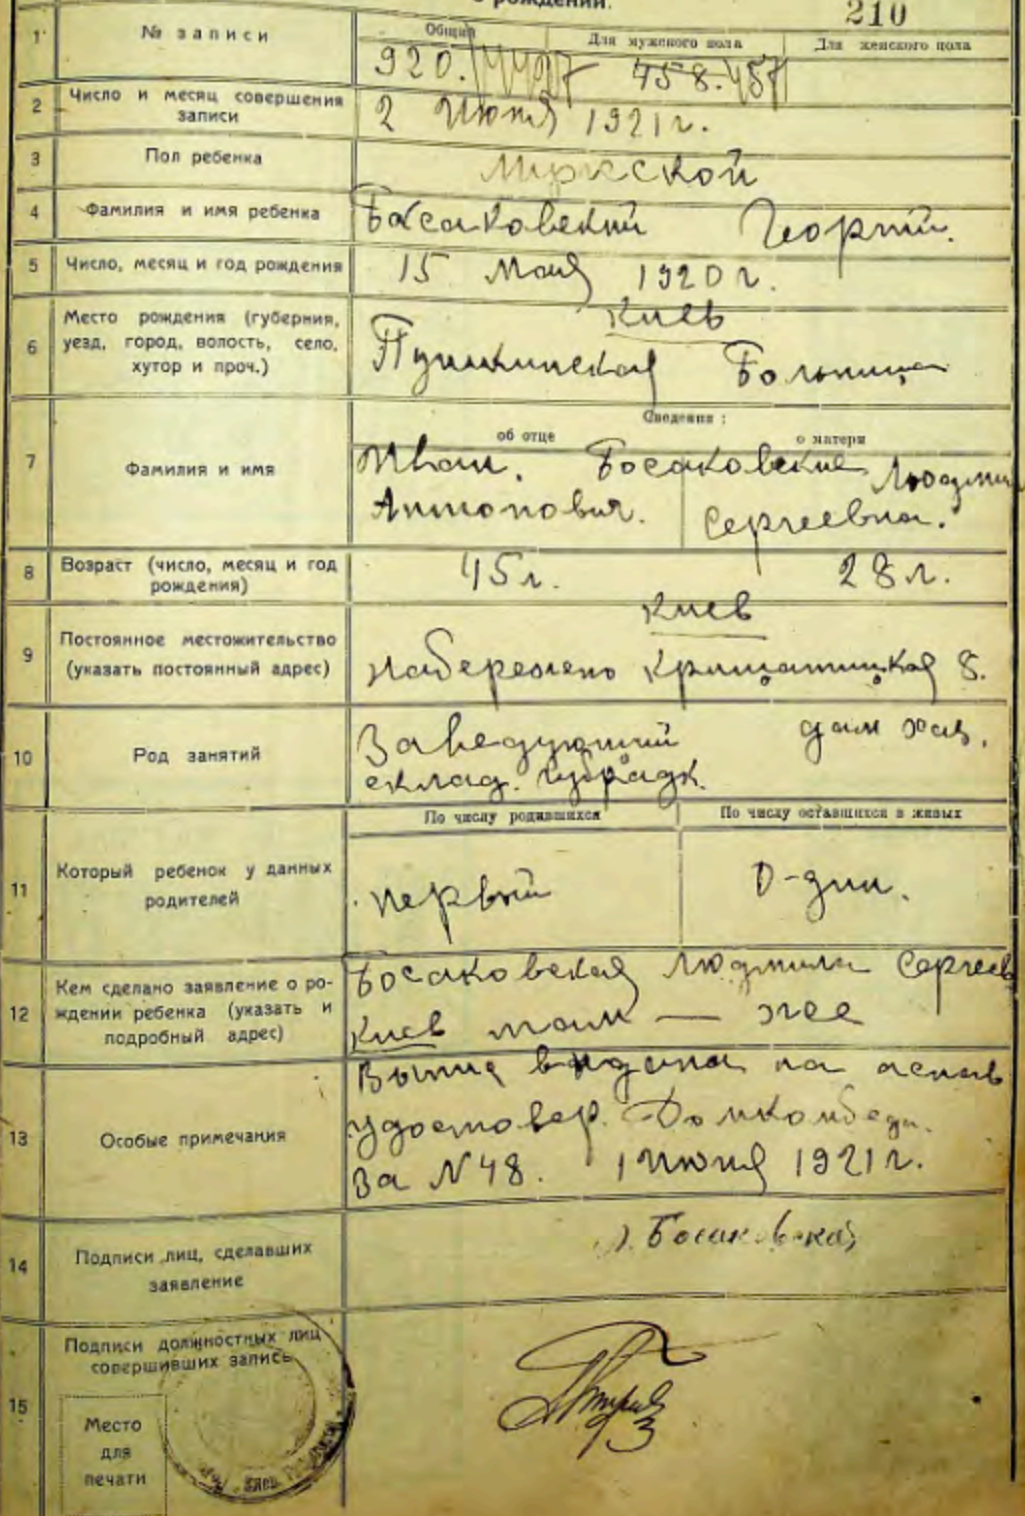 о рождении.
210
1 № записи
Общий Для мужского пола Для женского пола
920. 458.
2 Число и месяц совершения
записи
2 Июня 1921 г.
3 Пол ребенка
Мужской
4 Фамилия и имя ребенка
Босаковский Георгий.
5 Число, месяц и год рождения
15 Мая 1920 г.
6 Место рождения (губерния,
уезд, город, волость, село,
хутор и проч.)
Киев
Пушкинская Больница
Сведения:
об отце о матери
7 Фамилия и имя
Иван. Босаковские Людми
Антонович. Сергеевна.
8 Возраст (число, месяц и год
рождения)
45 л. 28 л.
9 Постоянное местожительство
(указать постоянный адрес)
Киев
Набережно Крищатицкая 8.
10 Род занятий
Заведующий дом хоз.
склад.
11 Который ребенок у данных
родителей
По числу родившихся По числу оставшихся в живых
первый О-дин.
12 Кем сделано заявление о ро-
ждении ребенка (указать и
подробный адрес)
Босаковская Людмила Сергеев
Киев там — же
13 Особые примечания
Выпис выдана на основ
удостовер. Домкомбеда.
За № 48. 1 Июня 1921 г.
14 Подписи лиц, сделавших
заявление
Л. Босаковская
15 Подписи должностных лиц
совершивших запись
Место
для
печати